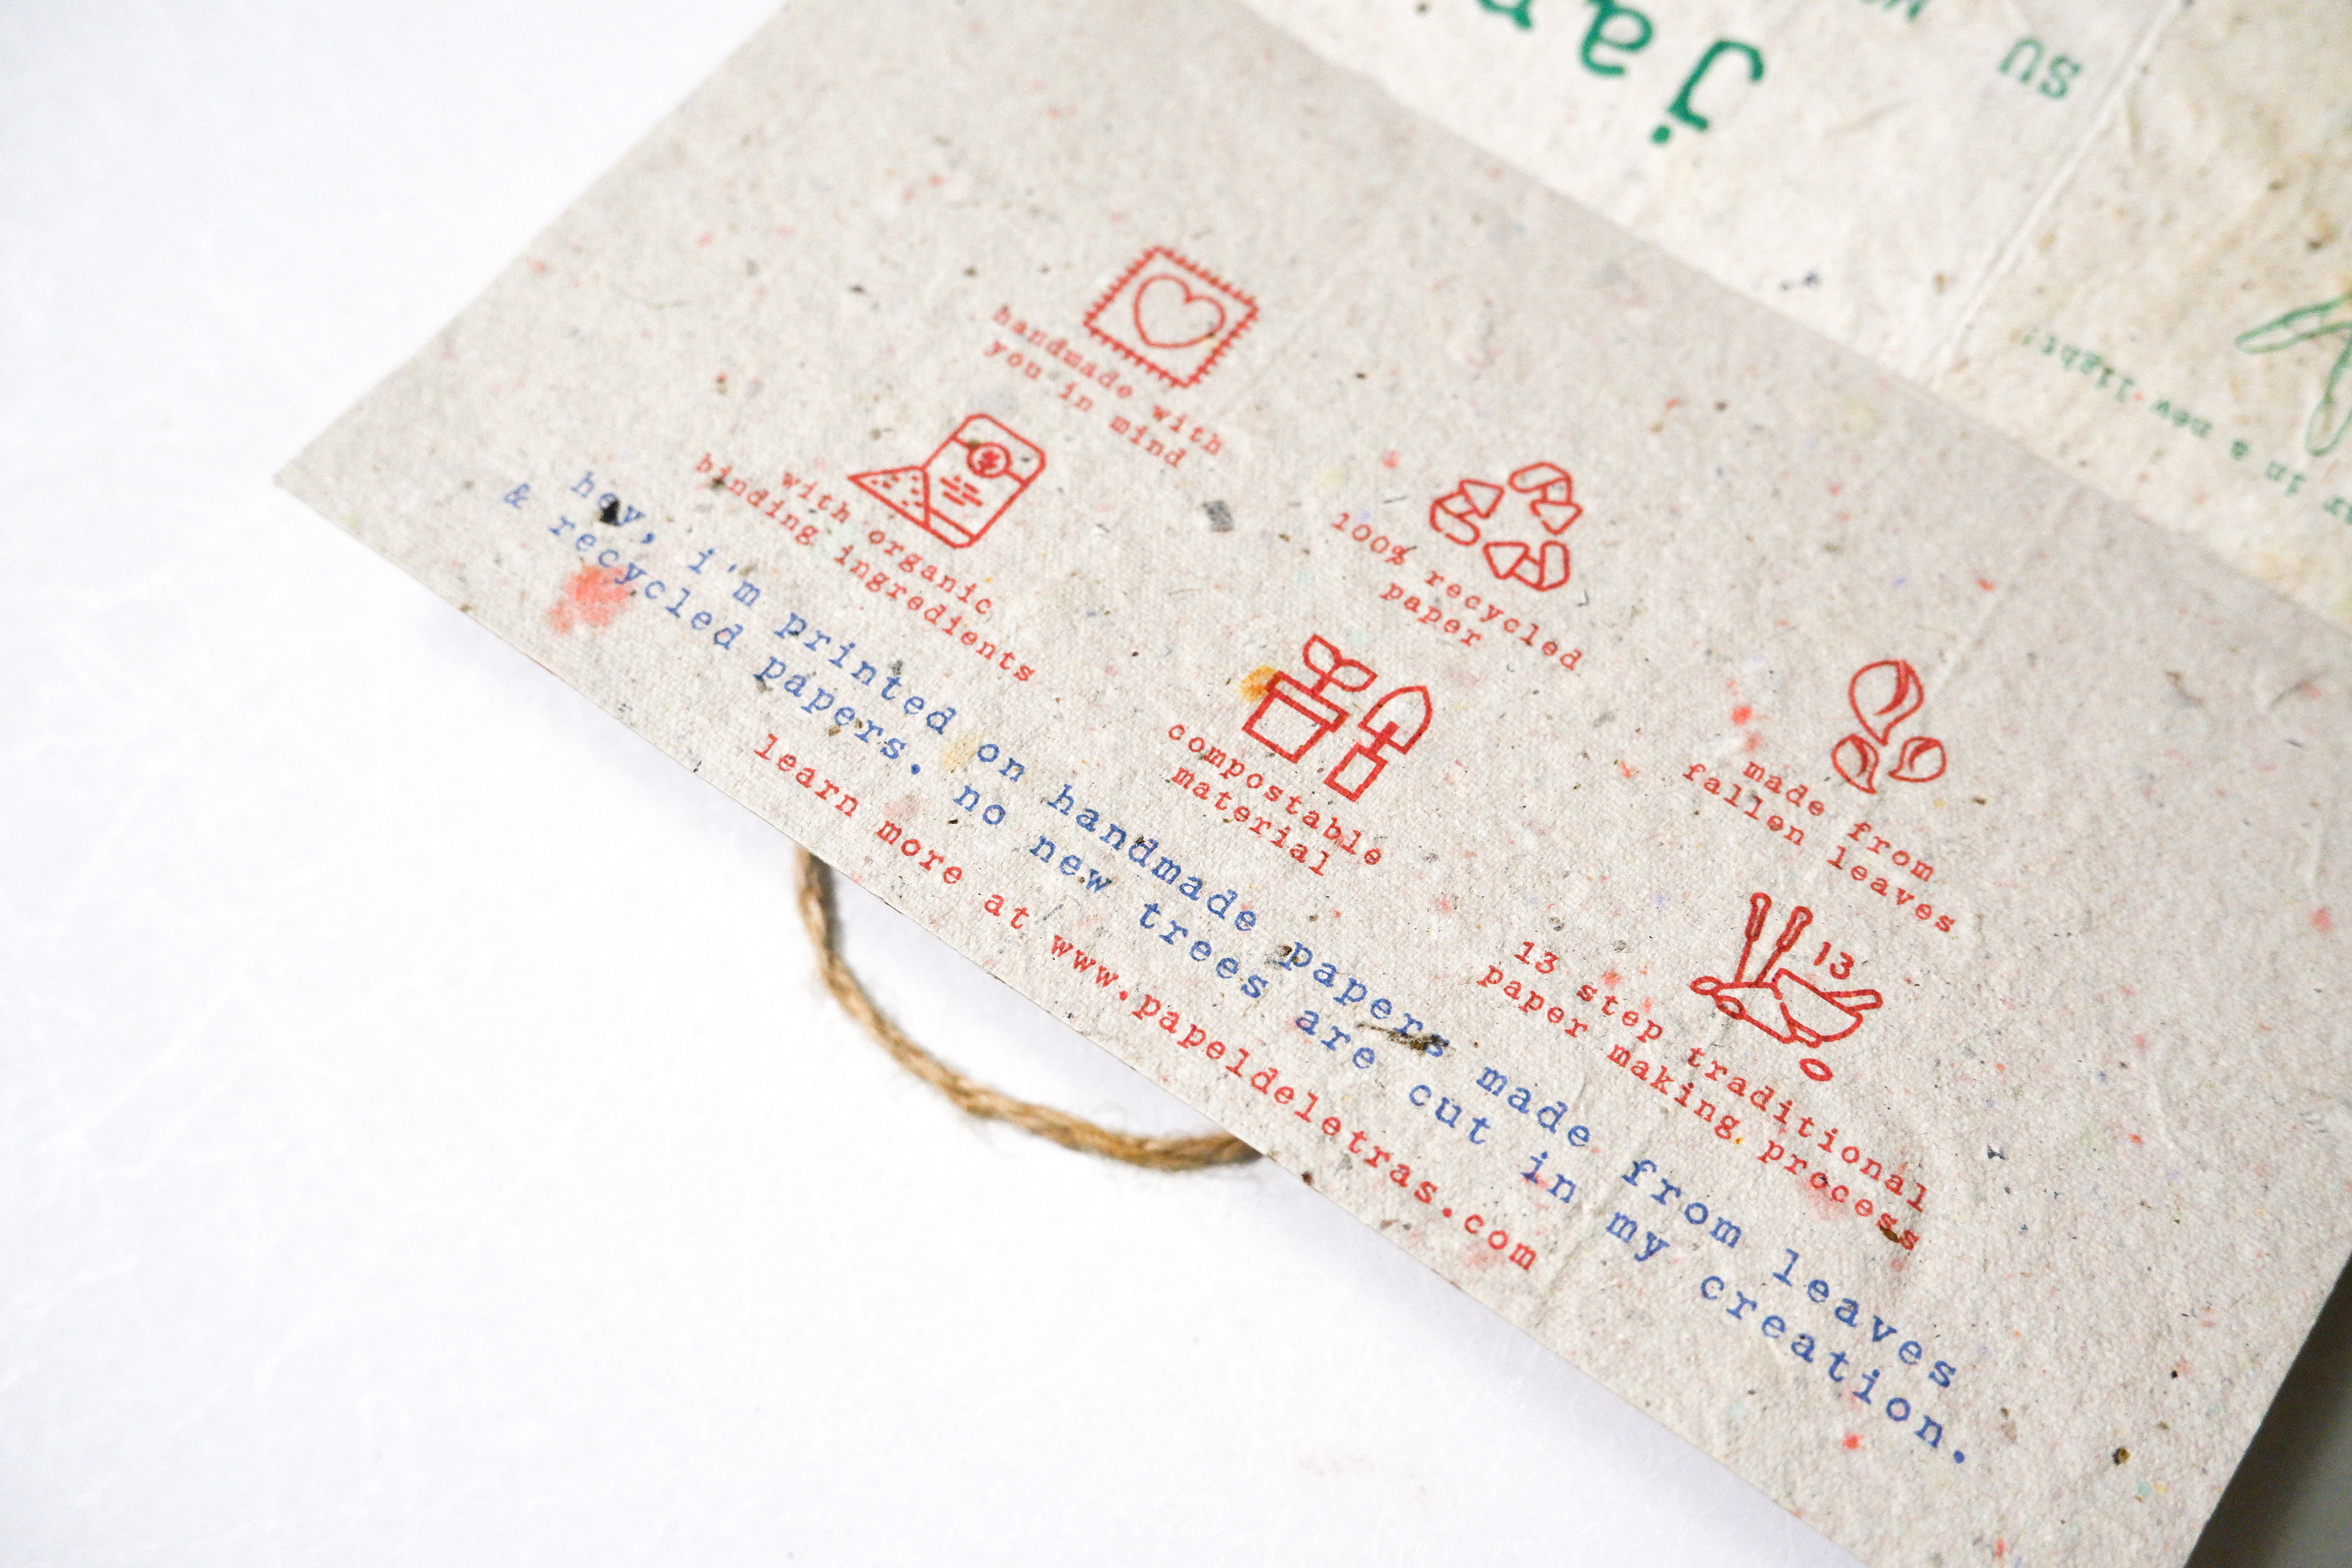 handmade with
you in mind
with organic
binding ingredients
100% recycled
paper
compostable
material
made from
fallen leaves
13
13 step traditional
paper making process
hey, i'm printed on handmade papers made from leaves
& recycled papers. no new trees are cut in my creation.
learn more at www.papeldeletras.com
in a new light!
su